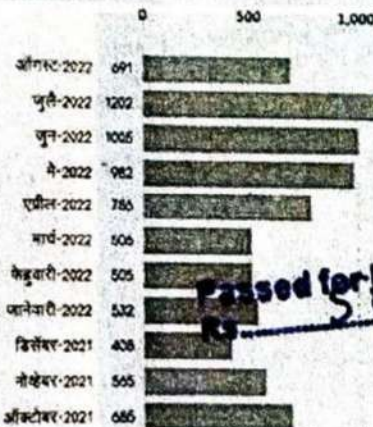 0 500 1,000
ऑगस्ट-2022 691
जुलै-2022 1202
जुन-2022 1005
मे-2022 982
एप्रील-2022 786
मार्च-2022 506
फेब्रुवारी-2022 505
जानेवारी-2022 532
Passed for
Rs
डिसेंबर-2021 408
नोव्हेंबर-2021 565
ऑक्टोबर-2021 685